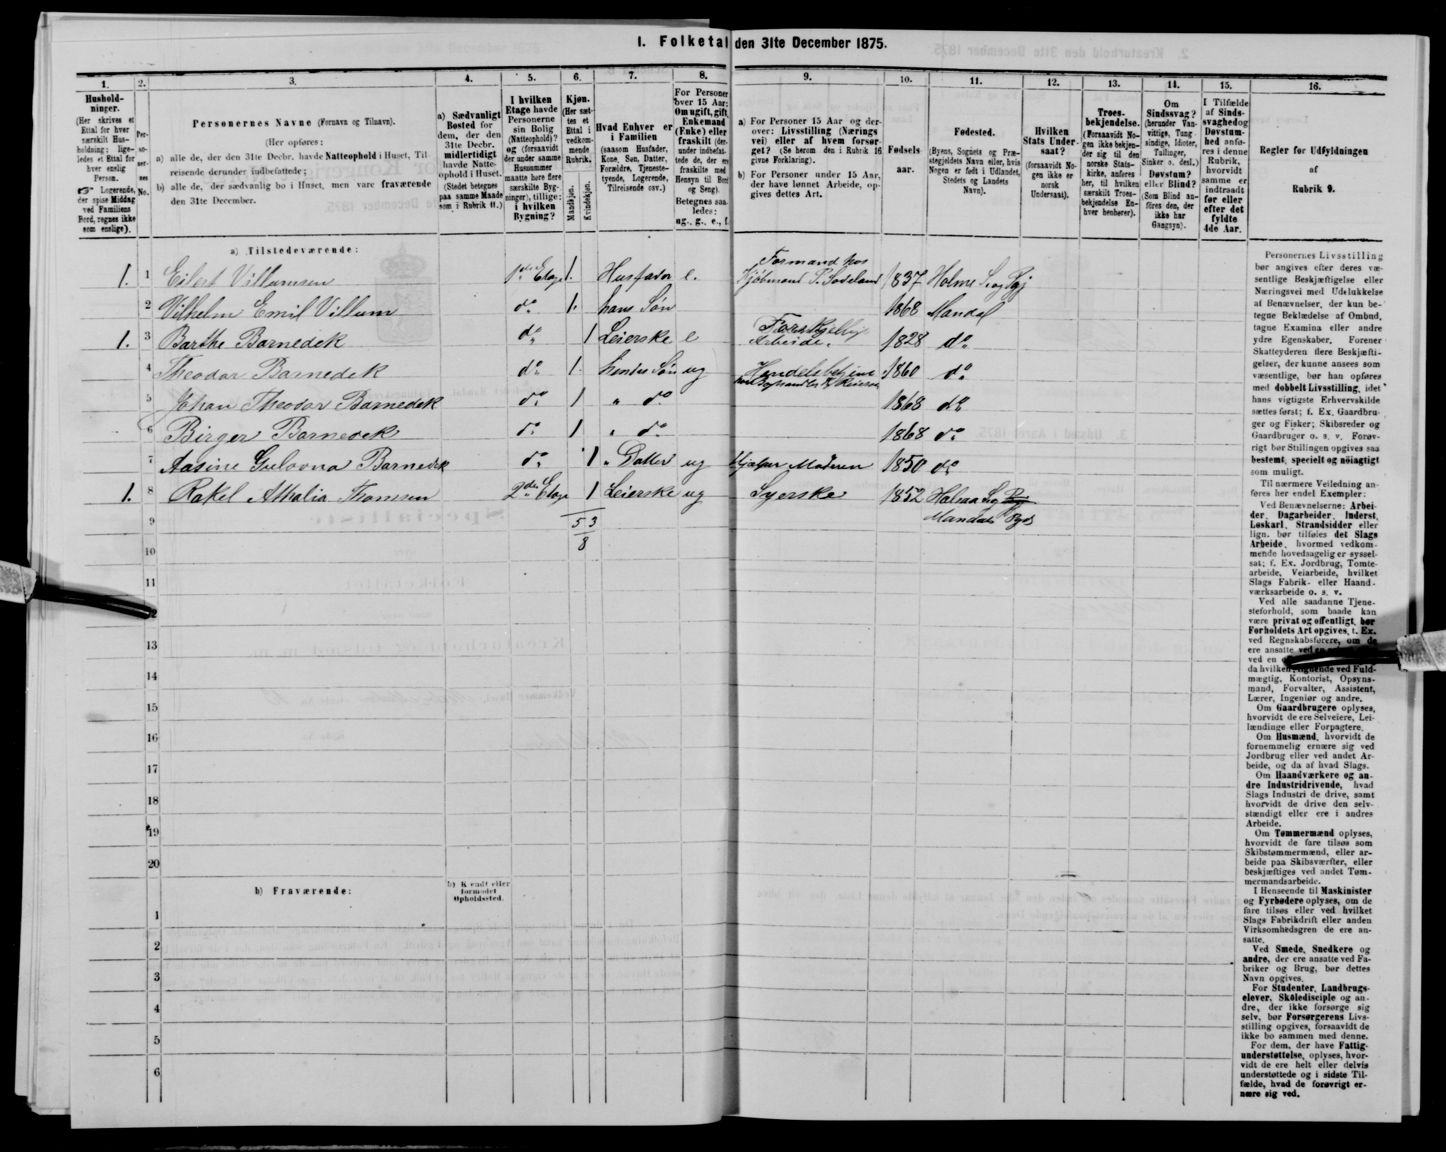 I. Folketal den 31te December 1875.
1. 2. 3. 4. 5. 6. 7. 8. 9. 10. 11. 12. 13. 14. 15. 16.
Hushold-
ninger.
(Her skrives et
Ettal for hver
særskilt Hus-
holdning; lige-
ledes et Ettal for
hver enslig
Person.
☞ Logerende,
der spise Middag
ved Familiens
Bord, regnes ikke
som enslige).
Per-
so-
ner-
nes
No.
Personernes Navne (Fornavn og Tilnavn).
(Her opføres:
a) alle de, der den 31te Decbr. havde Natteophold i Huset, Til-
reisende derunder indbefattede;
b) alle de, der sædvanlig bo i Huset, men vare fraværende
den 31te December.
a) Sædvanligt
Bosted for
dem, der den
31te Decbr.
midlertidigt
havde Natte-
ophold i Huset.
(Stedet betegnes
paa samme Maade
som i Rubrik 11.)
I hvilken
Etage havde
Personerne
sin Bolig
(Natteophold)?
og (forsaavidt
der under samme
Husnummer
maatte høre flere
særskilte Byg-
ninger), tillige:
i hvilken
Bygning?
Kjøn.
(Her sæt-
tes et
Ettal i
vedkom-
mende
Rubrik.)
Mandkjøn.
Kvindekjøn.
Hvad Enhver er
i Familien
(saasom Husfader,
Kone, Søn, Datter,
Forældre, Tjeneste-
tyende, Logerende,
Tilreisende osv.)
For Personer
over 15 Aar:
Om ugift, gift,
Enkemand
(Enke) eller
fraskilt (der-
under indbefat-
tede de, der ere
fraskilte med
Hensyn til Bord
og Seng).
Betegnes saa-
ledes:
ug., g., e., f.
a) For Personer 15 Aar og der-
over: Livsstilling (Nærings
vei) eller af hvem forsør-
get? (Se herom den i Rubrik 16
givne Forklaring).
b) For Personer under 15 Aar,
der have lønnet Arbeide, op-
gives dettes Art.
Fødsels
aar.
Fødested.
(Byens, Sognets og Præ-
stegjeldets Navn eller, hvis
Nogen er født i Udlandet,
Stedets og Landets
Navn).
Hvilken
Stats Under-
saat?
(forsaavidt No-
gen ikke er
norsk
Undersaat).
Troes-
bekjendelse.
(Forsaavidt No-
gen ikke bekjen-
der sig til den
norske Stats-
kirke, anføres
her, til hvilken
særskilt Troes-
bekjendelse En-
hver henhører).
Om
Sindssvag?
(herunder Van-
vittige, Tung-
sindige, Idioter,
Tullinger,
Sinker o. desl.)
Døvstum?
eller Blind?
(Som Blind an-
føres den, der
ikke har
Gangsyn).
I Tilfælde
af Sinds-
svaghed og
Døvstum-
hed anfø-
res i denne
Rubrik,
hvorvidt
samme er
indtraadt
før eller
efter det
fyldte
4de Aar.
Regler for Udfyldningen
af
Rubrik 9.
a) Tilstedeværende:
1. 1 Eilert Villumsen 1ste Etag 1. Husfader e. Formand hos Kjøbmand 1837 Holme
2 Vilhelm Emil Villum do 1. hans Søn 1868 Mandal
1. 3 Barthe Barnedek do 1 Leierske e Arbeide. 1828 do
4 Theodor Barnedek do 1. hendes Søn ug 1860 do
5 Johan Theodor Barnedek do 1 " do 1868 do
6 Birger Barnedek do 1 " do 1868 do
7 Aasine Gulovna Barnedek do 1 " Datter ug Hjælper Moderen 1850 do
1. 8 Rakel Athalia Thomsen 2den Etage 1 Leierske ug Syerske 1852 Halsaa Sg
Mandals Pgd
9 5 3
8
10
11
12
13
14
15
16
17
18
19
20
b) Fraværende:
b) Kjendt eller
formodet
Opholdssted.
1
2
3
4
5
6
Personernes Livsstilling
bør angives efter deres væ-
sentlige Beskjæftigelse eller
Næringsvei med Udelukkelse
af Benævnelser, der kun be-
tegne Beklædelse af Ombud,
tagne Examina eller andre
ydre Egenskaber. Forener
Skatteyderen flere Beskjæfti-
gelser, der kunne ansees som
væsentlige, bør han opføres
med dobbelt Livsstilling, idet
hans vigtigste Erhvervskilde
sættes først; f. Ex. Gaardbru-
ger og Fisker; Skibsreder og
Gaardbruger o. s. v. Forøv-
rigt bør Stillingen opgives saa
bestemt, specielt og nøiagtigt
som muligt.
Til nærmere Veiledning an-
føres her endel Exempler:
Ved Benævnelserne: Arbei-
der, Dagarbeider, Inderst,
Løskarl, Strandsidder eller
lign. bør tilføies det Slags
Arbeide, hvormed vedkom-
mende hovedsagelig er syssel-
sat; f. Ex. Jordbrug, Tomte-
arbeide, Veiarbeide, hvilket
Slags Fabrik- eller Haand-
værksarbeide o. s. v.
Ved alle saadanne Tjene-
steforhold, som baade kan
være privat og offentligt, bør
Forholdets Art opgives, t. Ex.
ved Regnskabsførere, om de
ere ansatte
ved en
da hvilken; lignende ved Fuld-
mægtig, Kontorist, Opsyns-
mand, Forvalter, Assistent,
Lærer, Ingeniør og andre.
Om Gaardbrugere oplyses,
hvorvidt de ere Selveiere, Lei-
lændinge eller Forpagtere.
Om Husmænd, hvorvidt de
fornemmelig ernære sig ved
Jordbrug eller ved andet Ar-
beide, og da af hvad Slags.
Om Haandværkere og an-
dre Industridrivende, hvad
Slags Industri de drive, samt
hvorvidt de drive den selv-
stændigt eller ere i andres
Arbeide.
Om Tømmermænd oplyses,
hvorvidt de fare tilsøs som
Skibstømmermænd, eller ar-
beide paa Skibsværfter, eller
beskjæftiges ved andet Tøm-
mermandsarbeide.
I Henseende til Maskinister
og Fyrbødere oplyses, om de
fare tilsøs eller ved hvilket
Slags Fabrikdrift eller anden
Virksomhedsgren de ere an-
satte.
Ved Smede, Snedkere og
andre, der ere ansatte ved Fa-
briker og Brug, bør dettes
Navn opgives.
For Studenter, Landbrugs-
elever, Skoledisciple og an-
dre, der ikke forsørge sig
selv, bør Forsørgerens Livs-
stilling opgives, forsaavidt de
ikke bo sammen med denne.
For dem, der have Fattig-
understøttelse, oplyses, hvor-
vidt de ere helt eller delvis
understøttede og i sidste Til-
fælde, hvad de forøvrigt er-
nære sig ved.